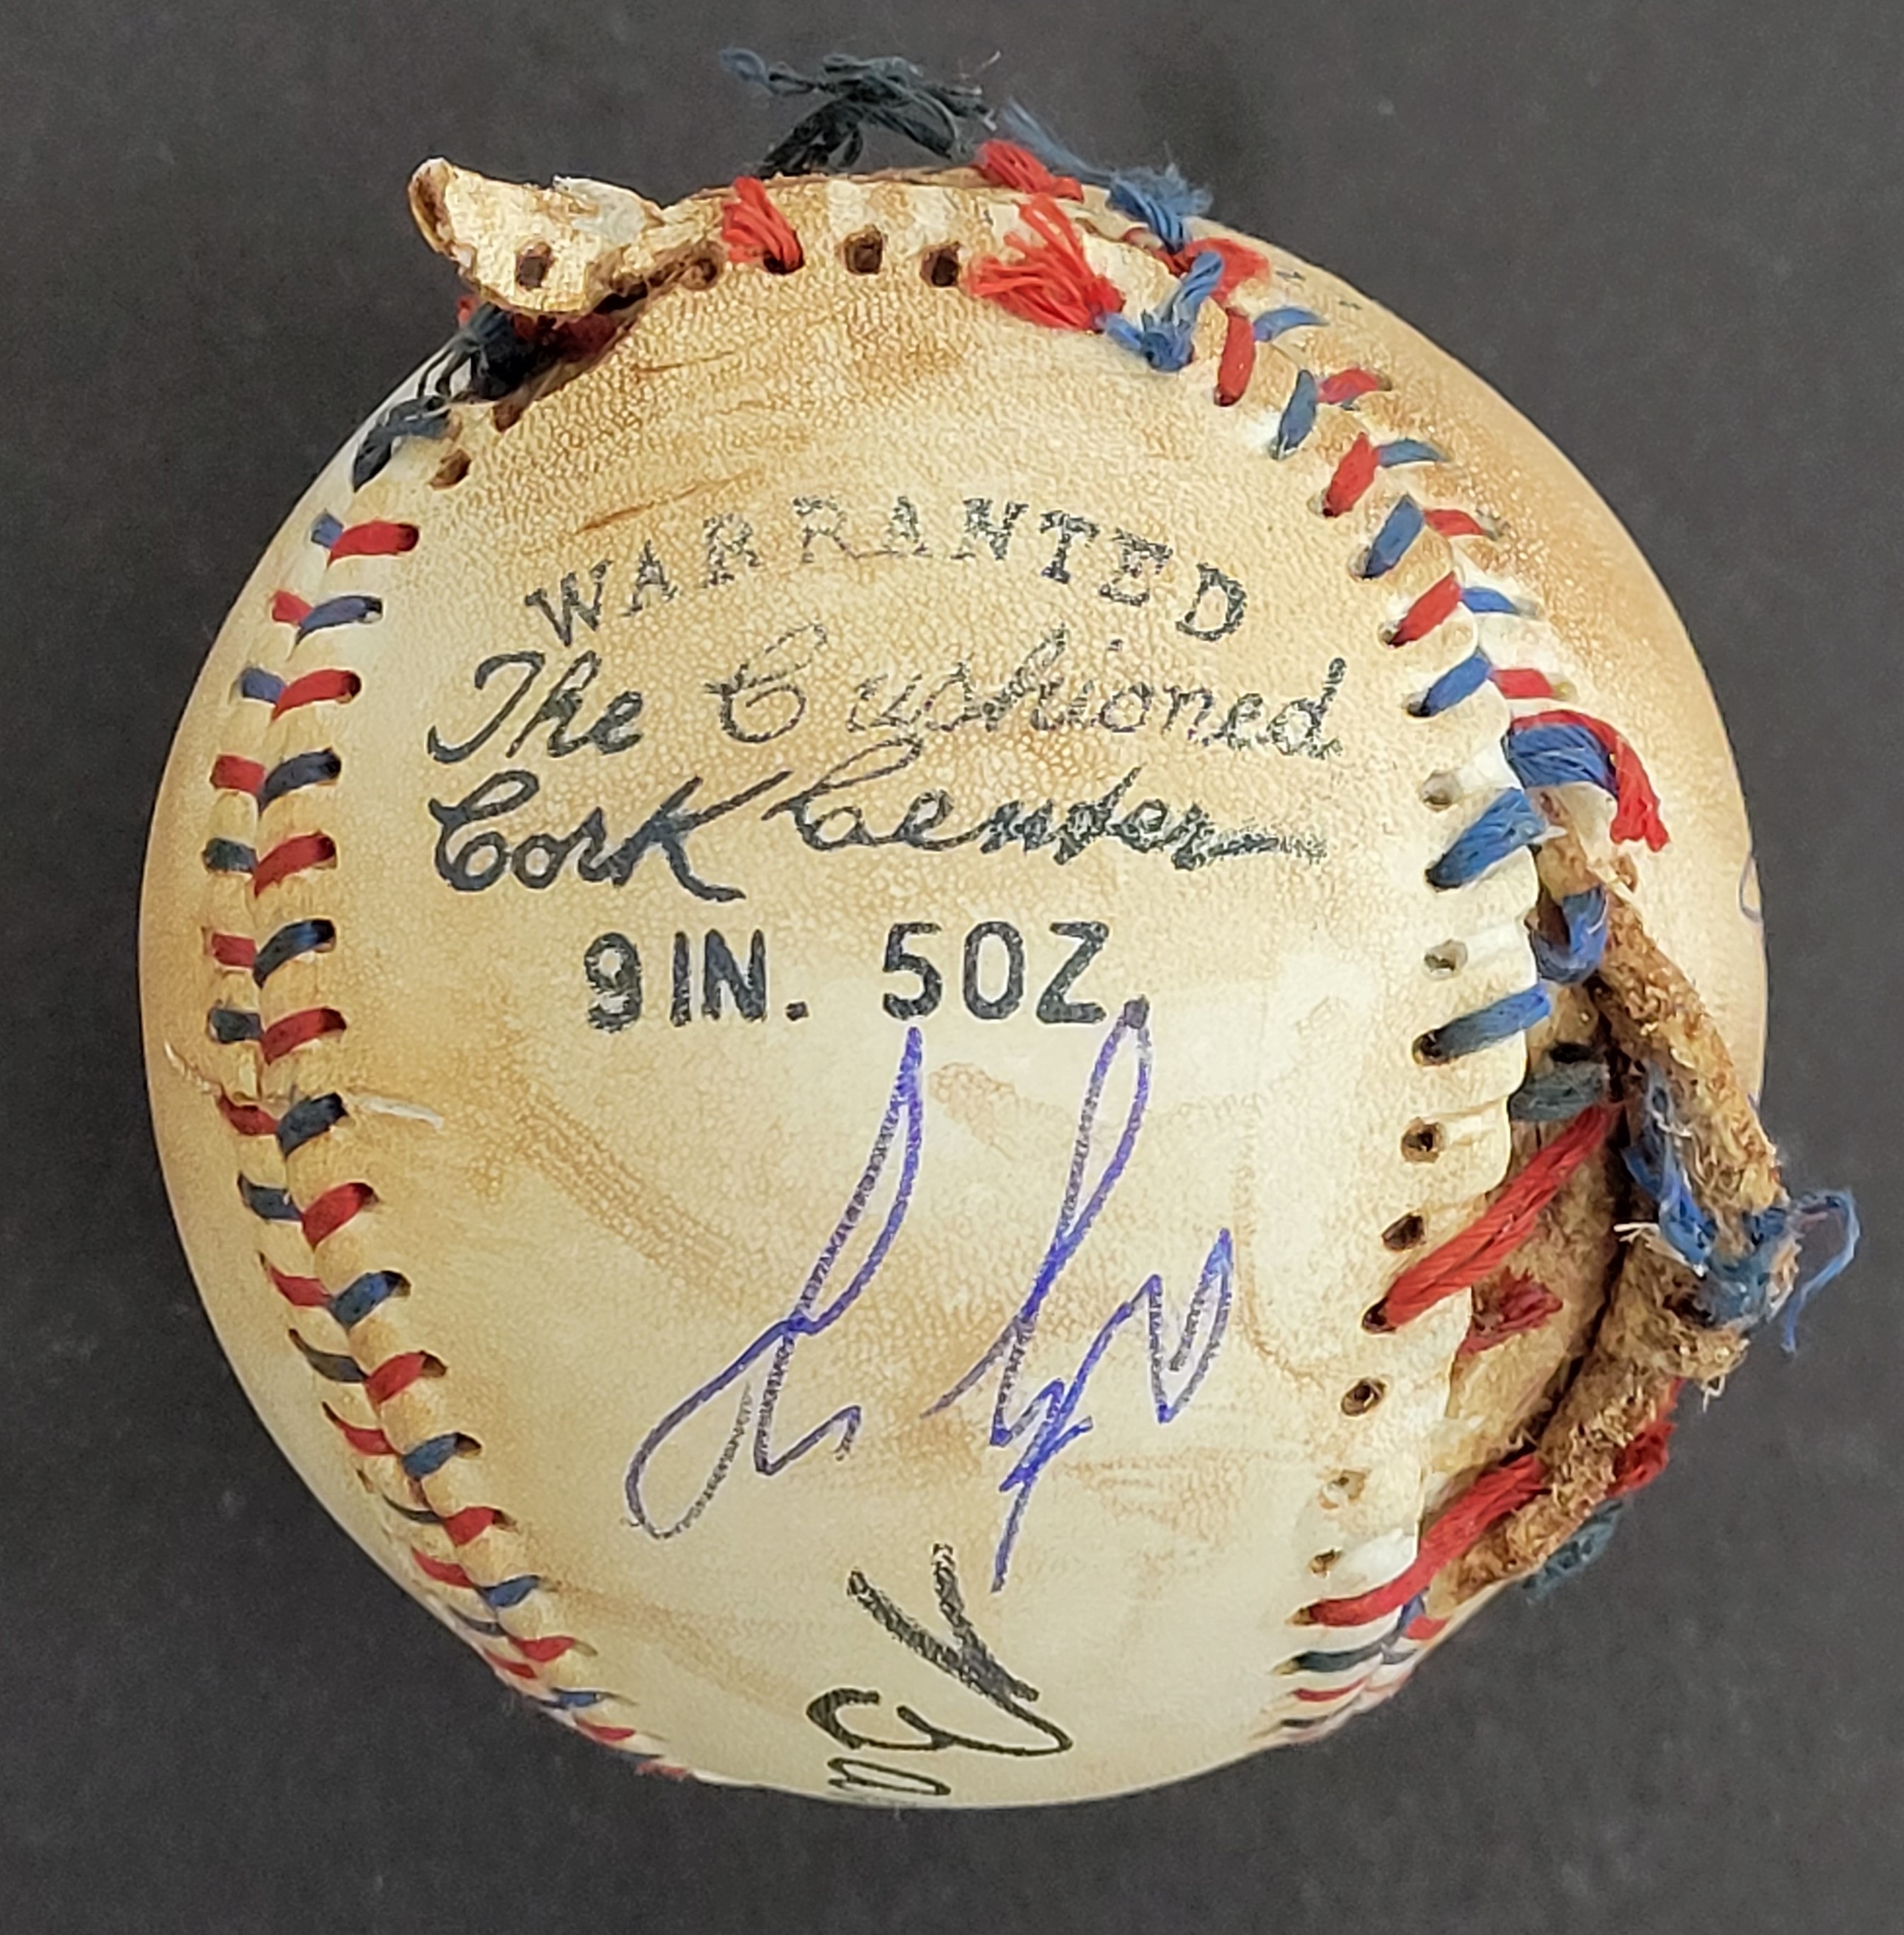 WARRANTED
The Cushioned
Cork Center
9 IN. 5 OZ.